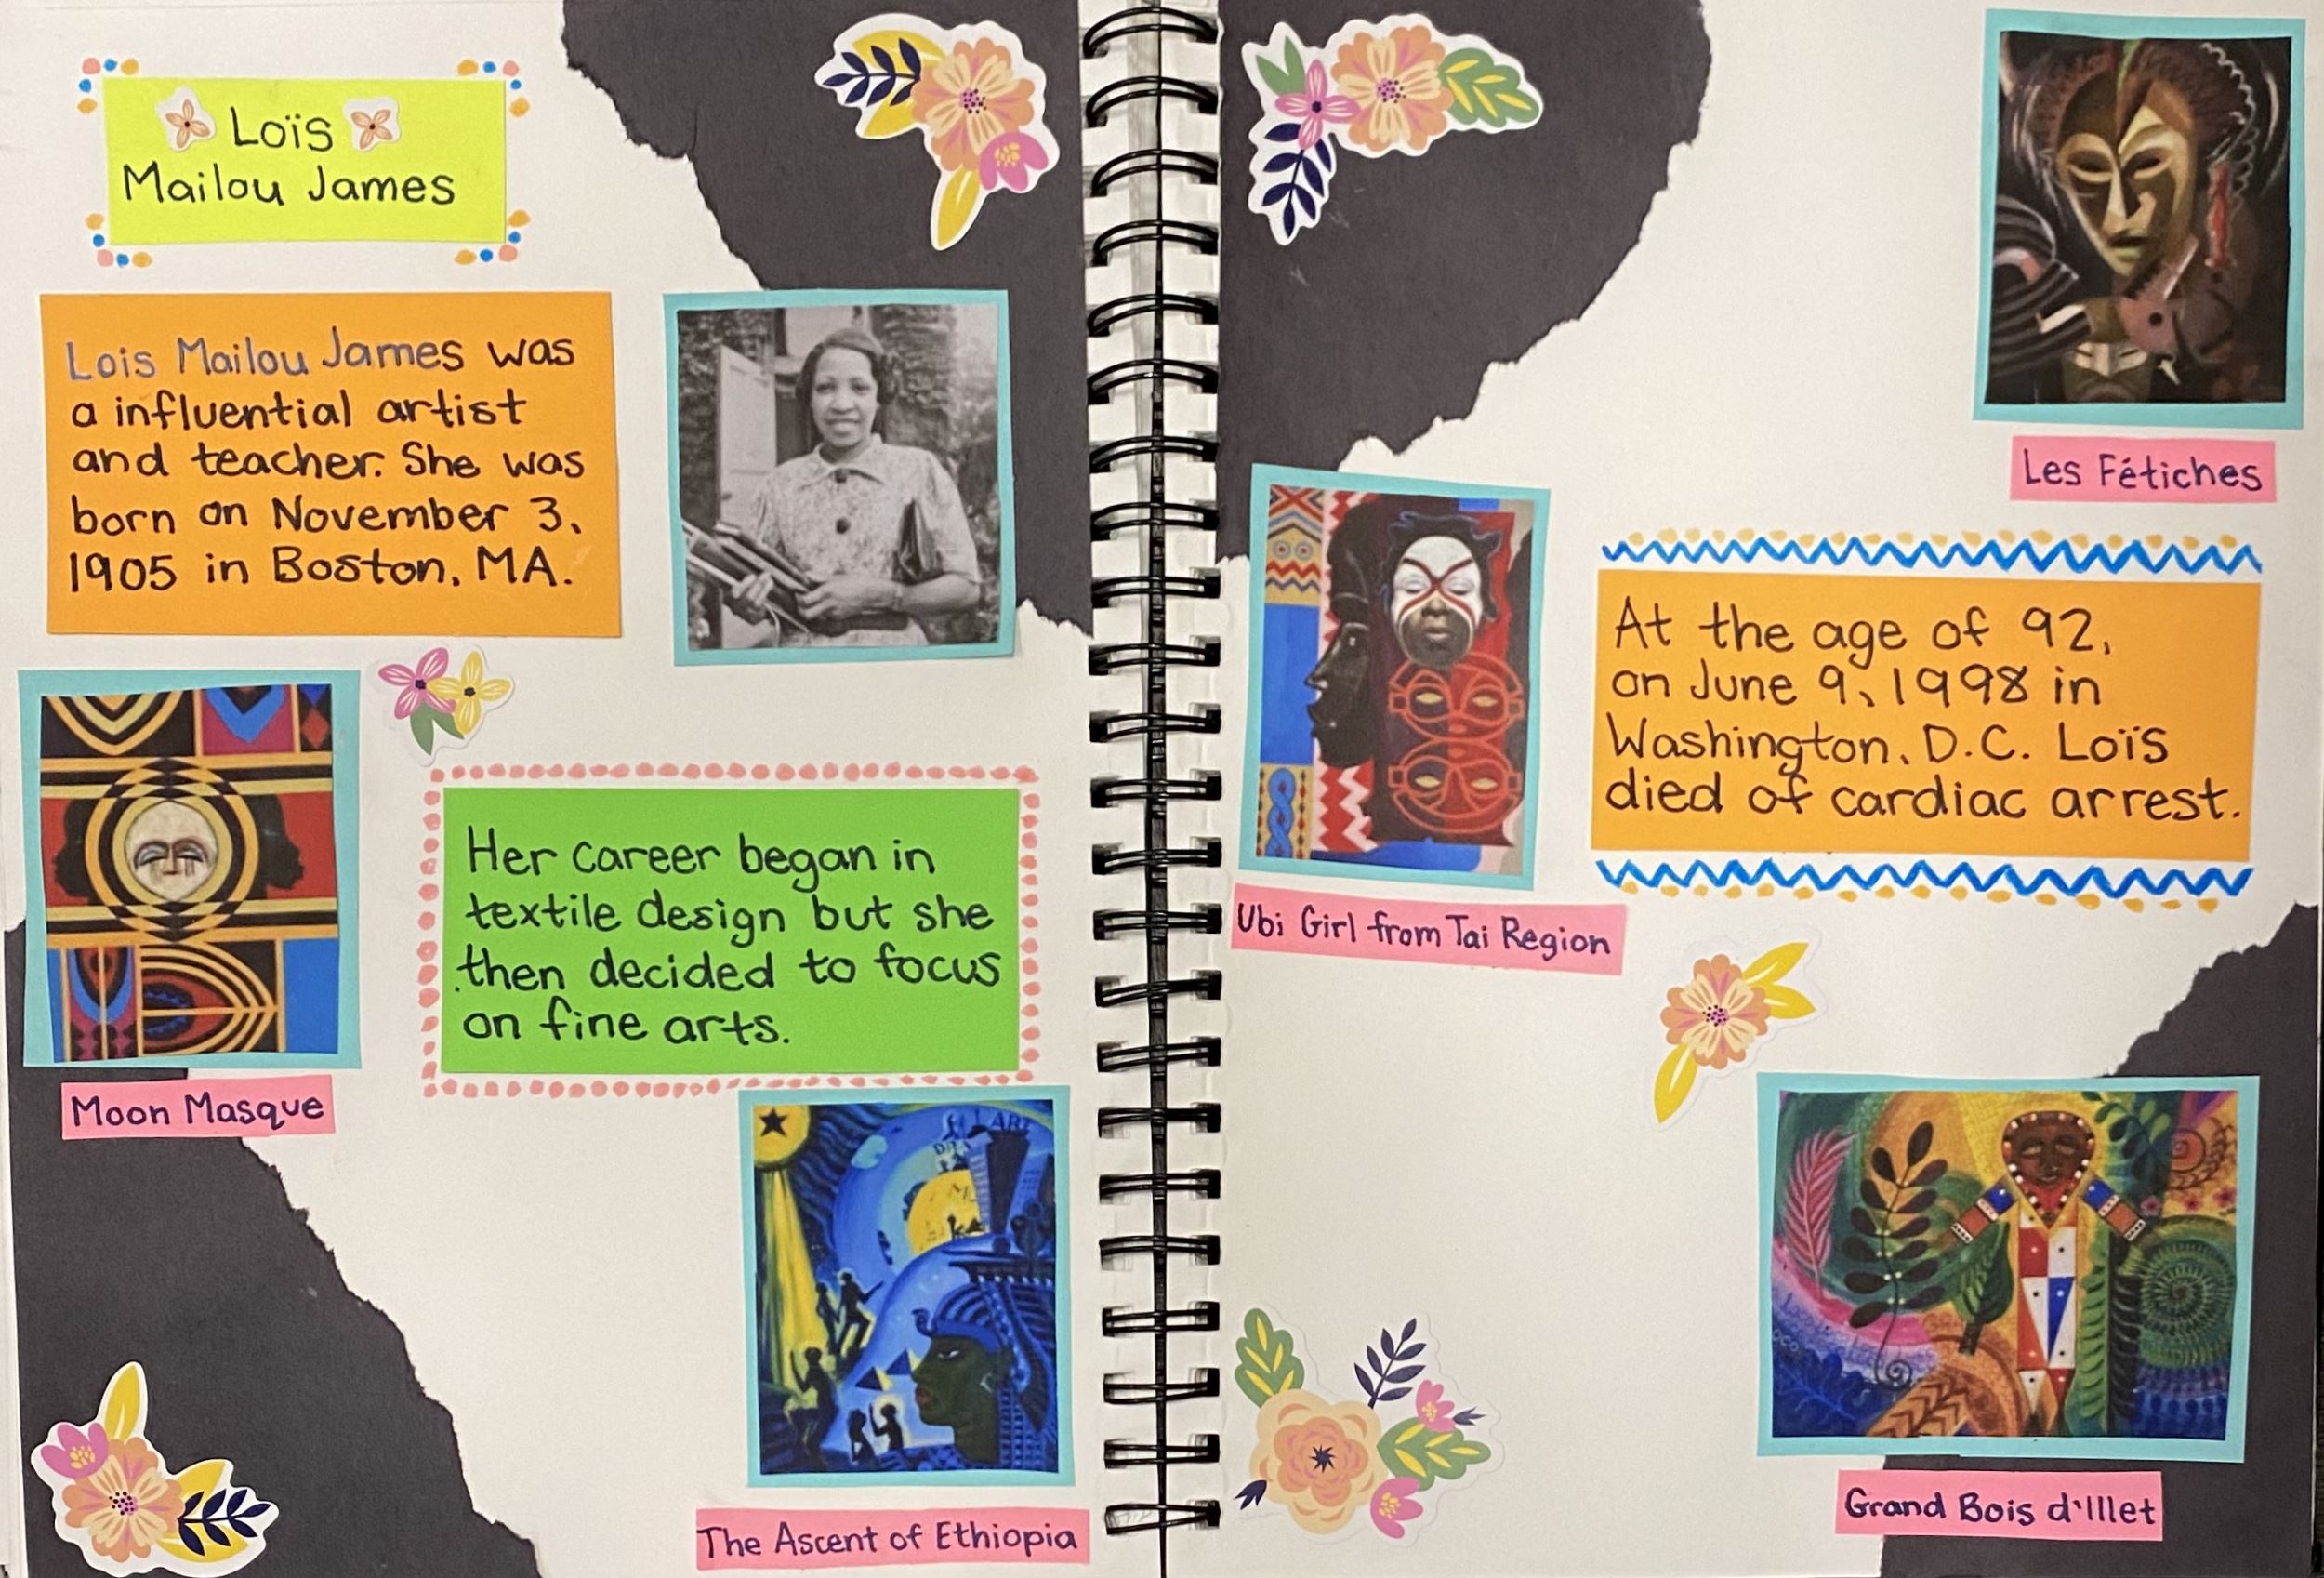 Loïs
Mailou James
Lois Mailou James was
a influential artist
and teacher. She was
born on November 3,
1905 in Boston, MA.
Moon Masque
Her career began in
textile design but she
then decided to focus
on fine arts.
ART
The Ascent of Ethiopia
Les Fétiches
Ubi Girl from Tai Region
At the age of 92,
on June 9, 1998 in
Washington, D.C. Loïs
died of cardiac arrest.
Grand Bois d'Illet